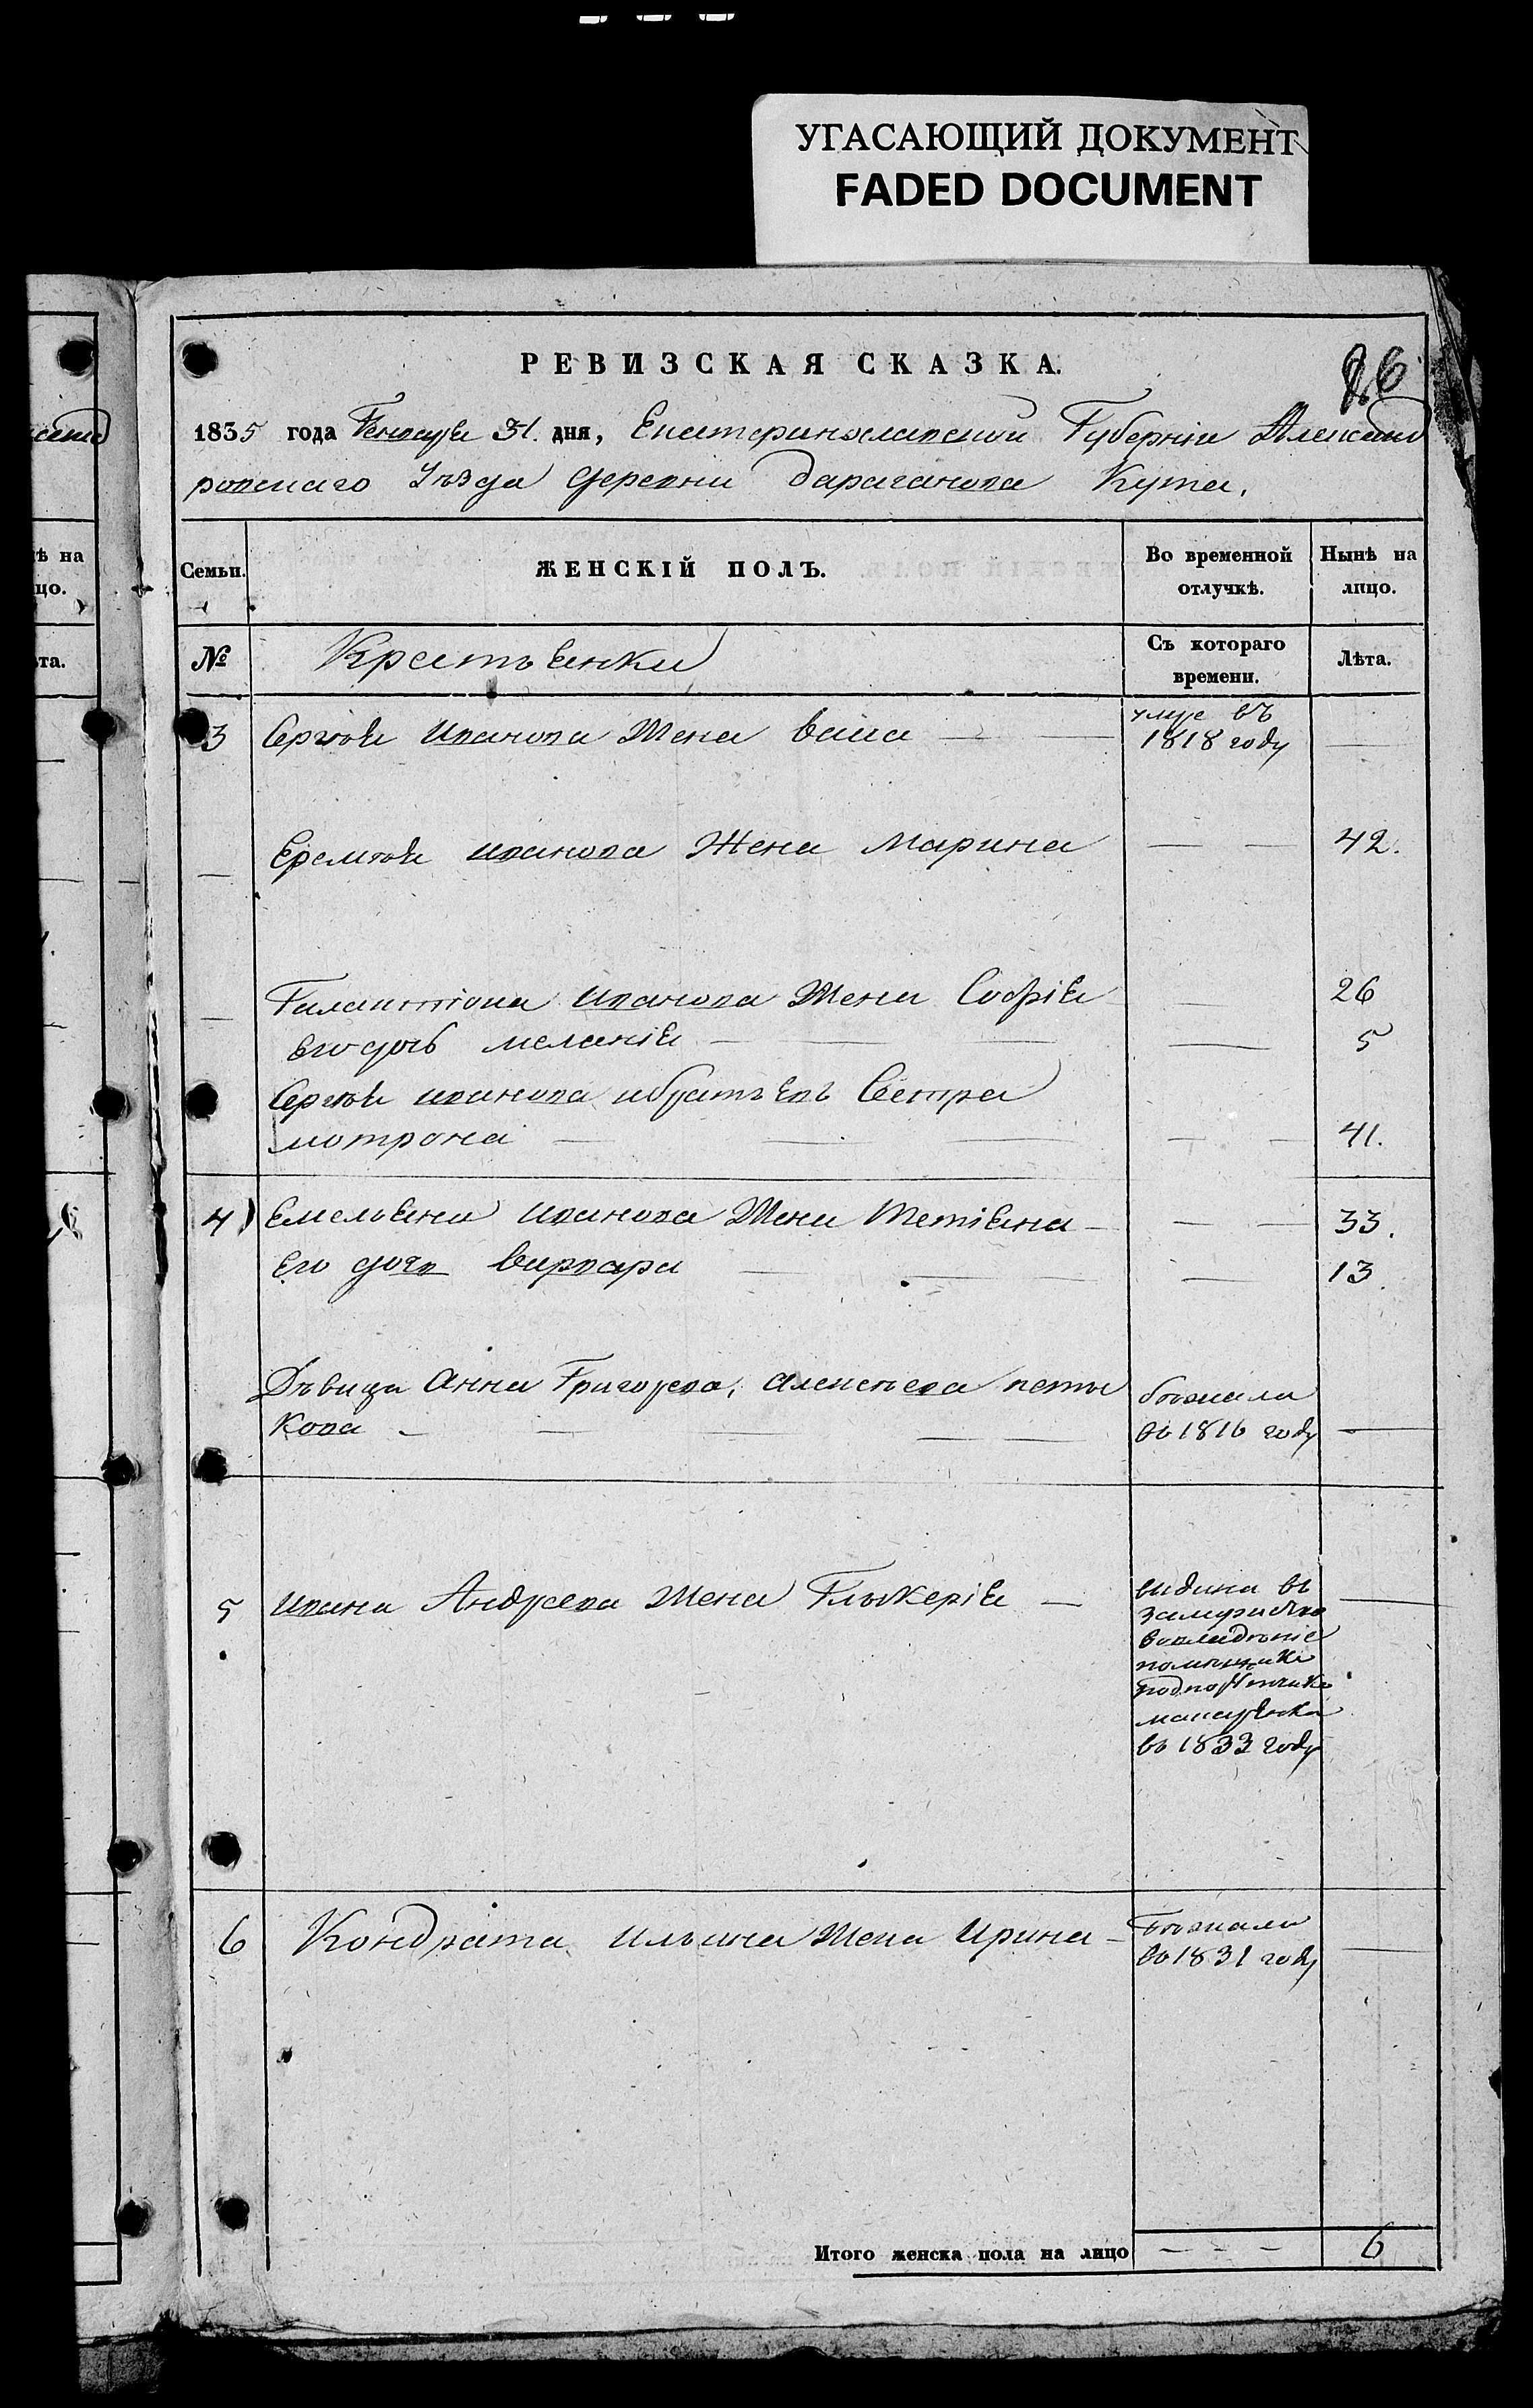 УГАСАЮЩИЙ ДОКУМЕНТ
FADED DOCUMENT
РЕВИЗСКАЯ СКАЗКА.
26
1835 года Генваря 31. дня, Екатеринославской Губерніи Александ
ровскаго Уѣзда деревни Дараганова Кута.
Семьи.
ЖЕНСКІЙ ПОЛЪ.
Во временной отлучкѣ.
Нынѣ на лицо.
№
Крестьянки
Съ котораго времени.
Лѣта.
3 Сергѣя Иванова Жена Васа
умре въ
1818 году
Еремѣя Иванова Жена Марина 42.
Галактіона Иванова Жена Софія 26
Его дочь Меланія 5
Сергѣя Иванова и братьевъ Сестра
Мотрона 41.
4) Емельяна Иванова Жена Татіяна 33.
Его дочь Варвара 13
Дѣвица Анна Григорева, Алексѣева
кова
бѣжала
въ 1816 году
5 Ивана Андрева Жена Глыкерія
видана въ
замужство
вовладѣніе
помѣщика
въ 1833 году
6 Кондрата Ильина Жена Ирина
бѣжала
въ 1831 году
Итого женска пола на лицо 6